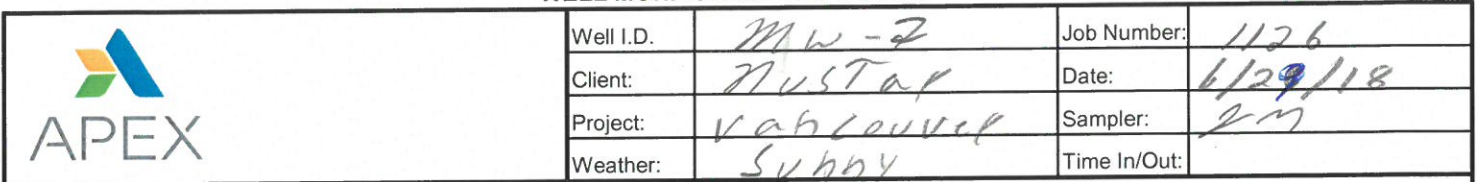 Well I.D. MW-7 Job Number: 1126
Client: NuStar Date: 6/29/18
Project: Vancouver Sampler:
APEX
Weather: Sunny Time In/Out: